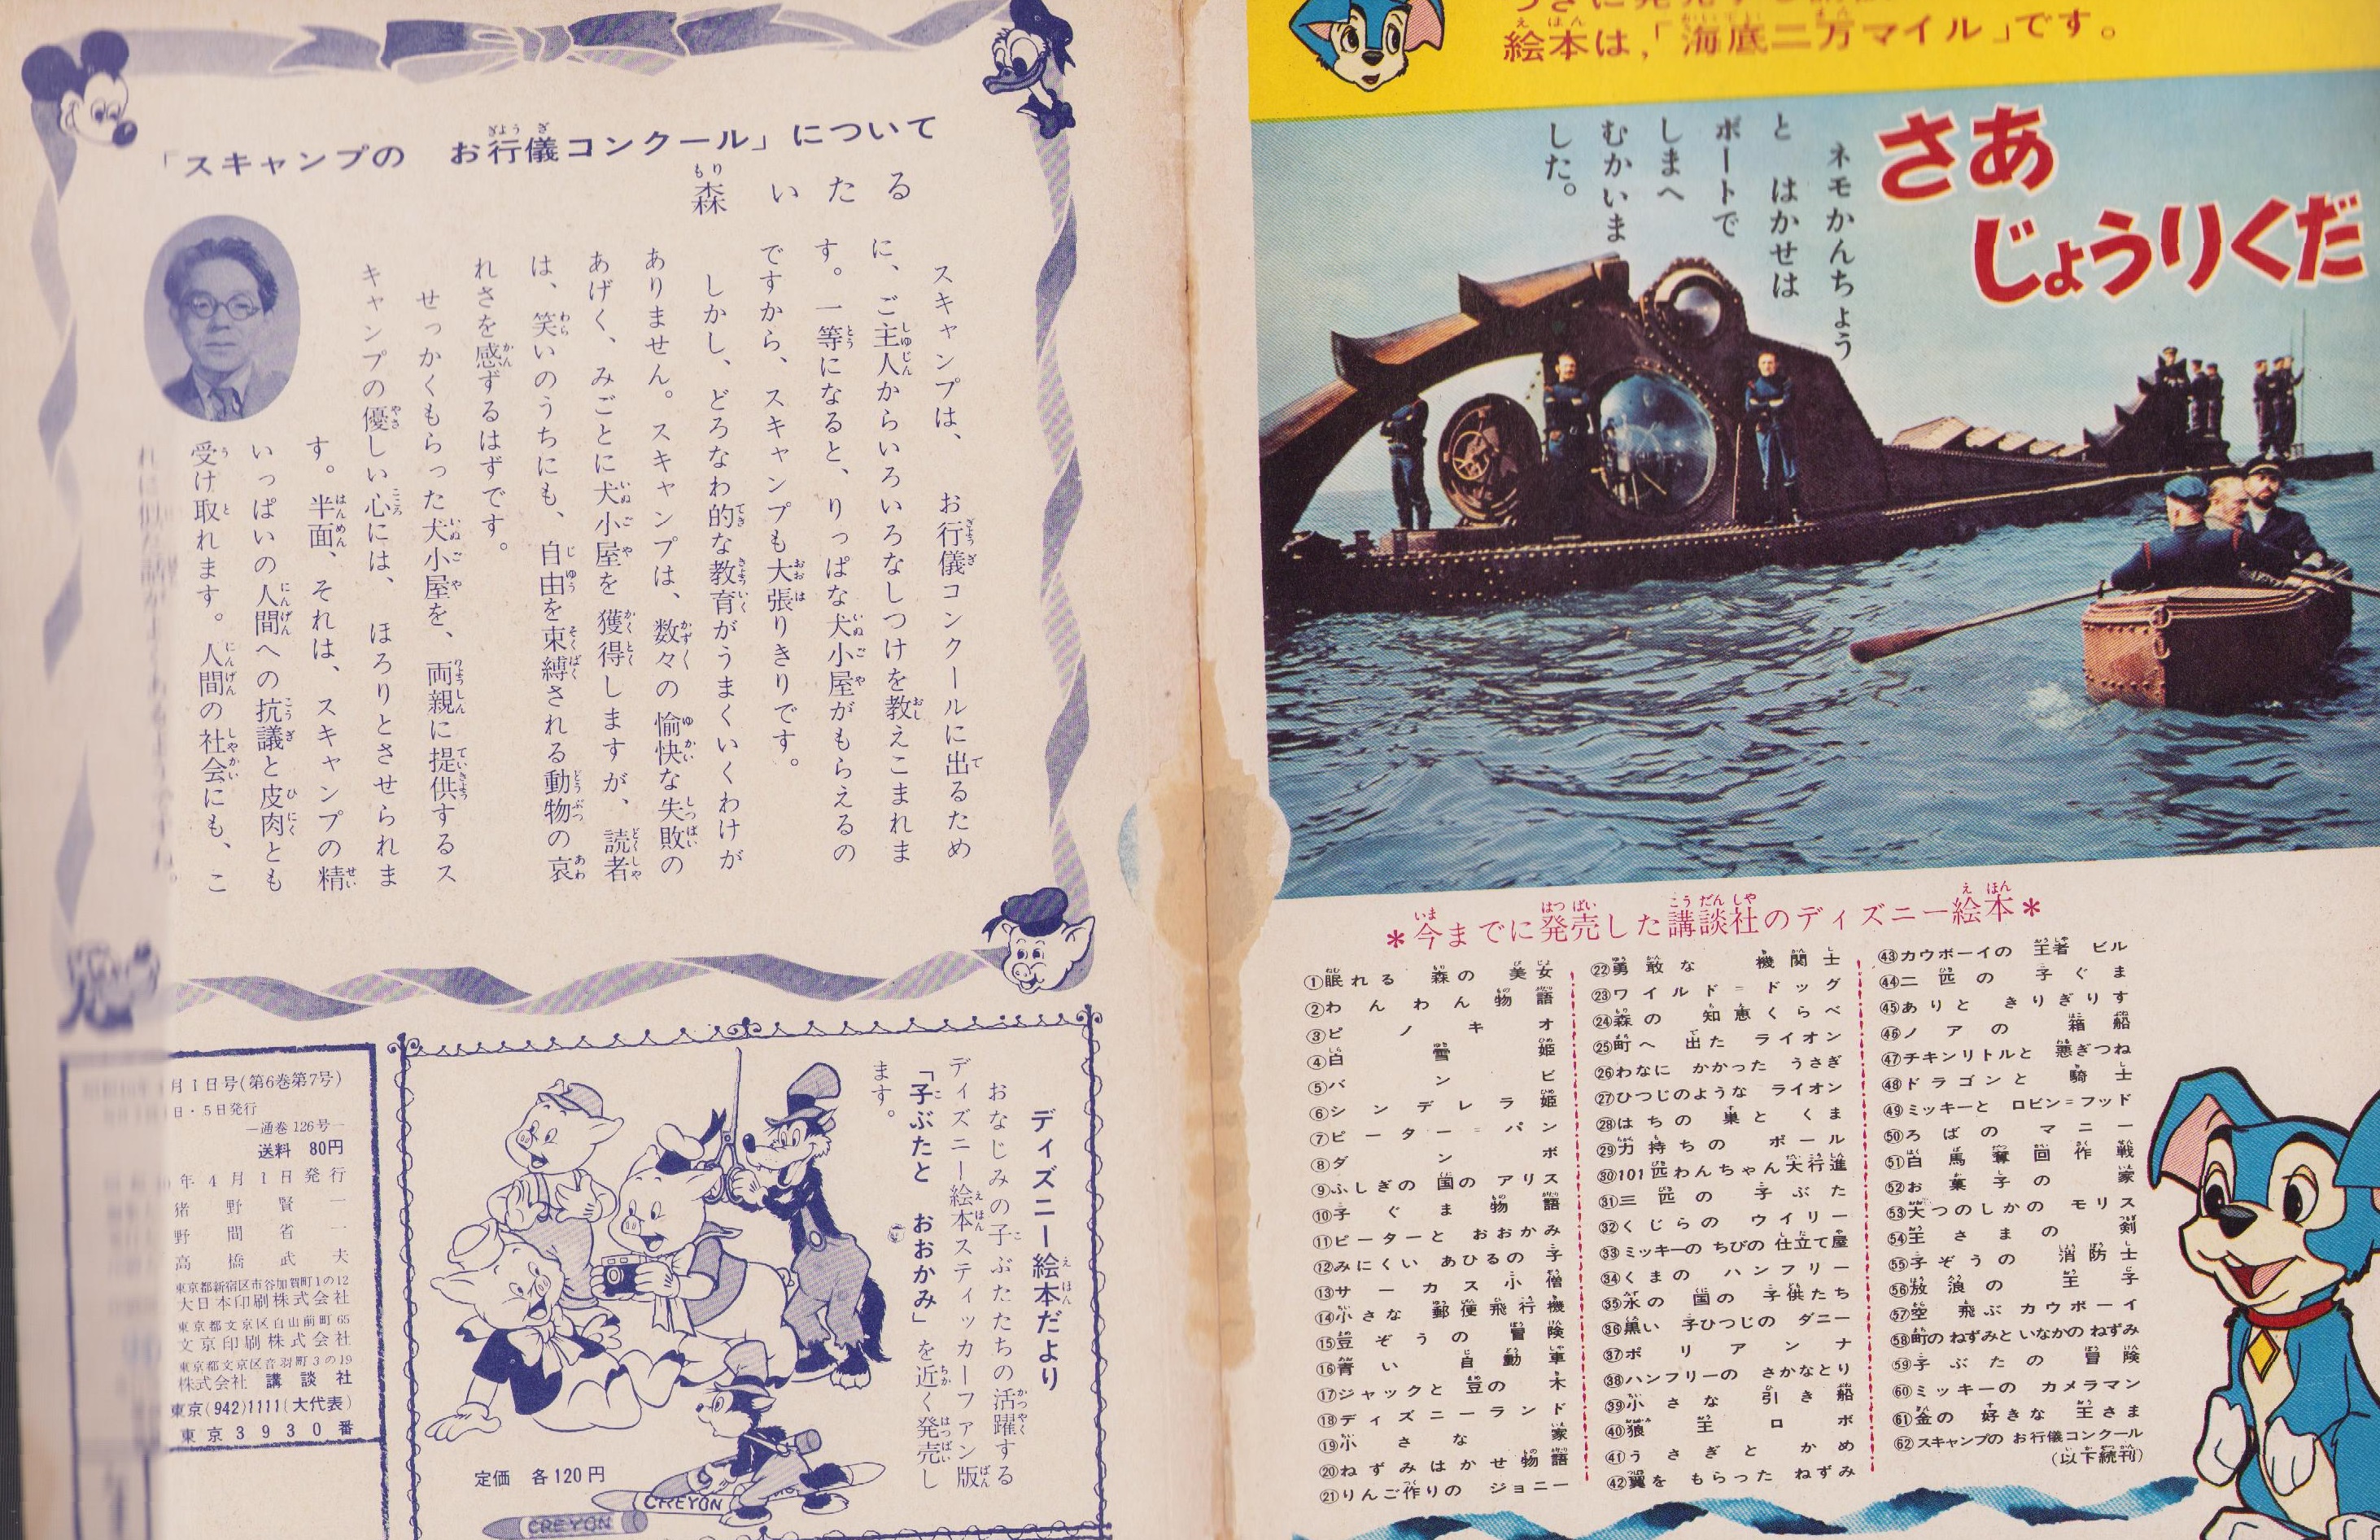 「スキャンプの　お行儀コンクール」について
森　いたる
スキャンプは、　お行儀コンクールに出るため
に、ご主人からいろいろなしつけを教えこまれま
す。一等になると、りっぱな犬小屋がもらえるの
ですから、スキャンプも大張りきりです。
しかし、どろなわ的な教育がうまくいくわけが
ありません。スキャンプは、数々の愉快な失敗の
あげく、みごとに犬小屋を獲得しますが、読者
は、笑いのうちにも、自由を束縛される動物の哀
れさを感ずるはずです。
せっかくもらった犬小屋を、両親に提供するス
キャンプの優しい心には、ほろりとさせられま
す。半面、それは、スキャンプの精
いっぱいの人間への抗議と皮肉とも
受け取れます。人間の社会にも、こ
ディズニー絵本だより
おなじみの子ぶたたちの活躍する
ディズニー絵本ステッカーファン版
「子ぶたと　おおかみ」を近く発売し
ます。
定価　各120円
CREYON
CREYON
月1日号(第6巻第7号)
日・5日発行
―通巻126号―
送料　80円
年4月1日発行
猪野賢一
野間省一
高橋武夫
東京都新宿区市谷加賀町1の12
大日本印刷株式会社
東京都文京区白山前町65
文京印刷株式会社
東京都文京区音羽町3の19
株式会社　講談社
東京(942)1111(大代表)
東京3930番
絵本は,「海底二万マイル」です。
さあ
じょうりくだ
ネモかんちょう
と　はかせは
ボートで
しまへ
むかいま
した。
*今までに発売した講談社のディズニー絵本*
①眠れる　森の　美女
②わんわん物語
③ピノキオ
④白雪姫
⑤バンビ
⑥シンデレラ姫
⑦ピーター=パン
⑧ダンボ
⑨ふしぎの　国の　アリス
⑩子ぐま物語
⑪ピーターと　おおかみ
⑫みにくい　あひるの　子
⑬サーカス小僧
⑭小さな　郵便飛行機
⑮豆ぞうの　冒険
⑯青い　自動車
⑰ジャックと　豆の　木
⑱ディズニーランド
⑲小さな　家
⑳ねずみはかせ物語
㉑りんご作りの　ジョニー
㉒勇敢な　機関士
㉓ワイルド=ドッグ
㉔森の　知恵くらべ
㉕町へ　出た　ライオン
㉖わなに　かかった　うさぎ
㉗ひつじのような　ライオン
㉘はちの　巣と　くま
㉙力持ちの　ポール
㉚101匹わんちゃん大行進
㉛三匹の　子ぶた
㉜くじらの　ウイリー
㉝ミッキーの　ちびの　仕立て屋
㉞くまの　ハンフリー
㉟水の　国の　子供たち
㊱黒い　子ひつじの　ダニー
㊲ポリアンナ
㊳ハンフリーの　さかなとり
㊴小さな　引き船
㊵狼王　ロボ
㊶うさぎと　かめ
㊷翼を　もらった　ねずみ
㊸カウボーイの　王者　ビル
㊹二匹の　子ぐま
㊺ありと　きりぎりす
㊻ノアの　箱船
㊼チキンリトルと　悪ぎつね
㊽ドラゴンと　騎士
㊾ミッキーと　ロビン=フッド
㊿ろばの　マニー
51白馬奪回作戦
52お菓子の　家
53大つのしかの　モリス
54王さまの　剣
55子ぞうの　消防士
56放浪の　王子
57空飛ぶカウボーイ
58町の　ねずみと　いなかの　ねずみ
59子ぶたの　冒険
60ミッキーの　カメラマン
61金の　好きな　王さま
62スキャンプの　お行儀コンクール
(以下続刊)